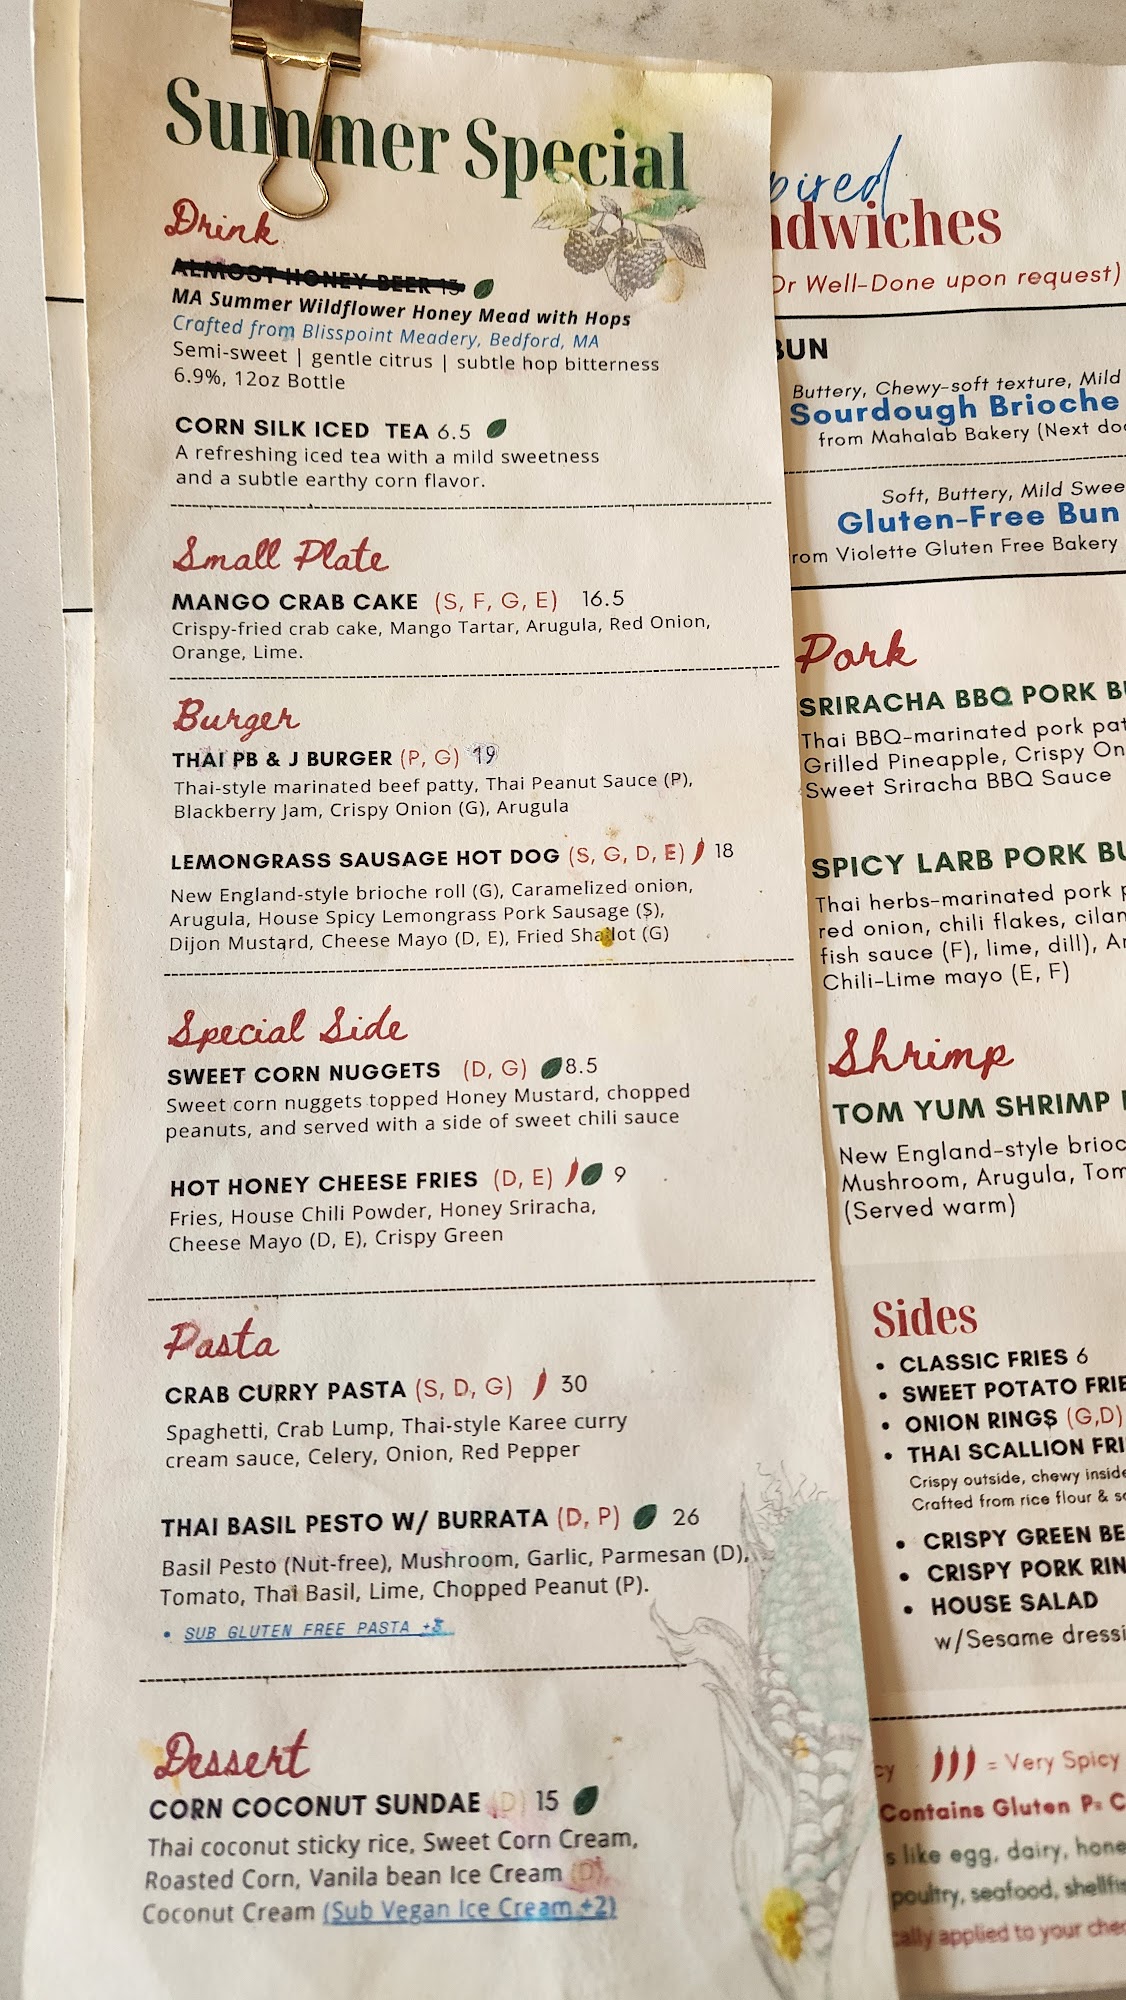 Summer Special
Drink
ALMOST HONEY BEER 15
MA Summer Wildflower Honey Mead with Hops
Crafted from Blisspoint Meadery, Bedford, MA
Semi-sweet | gentle citrus | subtle hop bitterness
6.9%, 12oz Bottle
CORN SILK ICED TEA 6.5
A refreshing iced tea with a mild sweetness
and a subtle earthy corn flavor.
Small Plate
MANGO CRAB CAKE (S, F, G, E) 16.5
Crispy-fried crab cake, Mango Tartar, Arugula, Red Onion,
Orange, Lime.
Burger
THAI PB & J BURGER (P, G) 19
Thai-style marinated beef patty, Thai Peanut Sauce (P),
Blackberry Jam, Crispy Onion (G), Arugula
LEMONGRASS SAUSAGE HOT DOG (S, G, D, E) 18
New England-style brioche roll (G), Caramelized onion,
Arugula, House Spicy Lemongrass Pork Sausage (S),
Dijon Mustard, Cheese Mayo (D, E), Fried Shallot (G)
Special Side
SWEET CORN NUGGETS (D, G) 8.5
Sweet corn nuggets topped Honey Mustard, chopped
peanuts, and served with a side of sweet chili sauce
HOT HONEY CHEESE FRIES (D, E) 9
Fries, House Chili Powder, Honey Sriracha,
Cheese Mayo (D, E), Crispy Green
Pasta
CRAB CURRY PASTA (S, D, G) 30
Spaghetti, Crab Lump, Thai-style Karee curry
cream sauce, Celery, Onion, Red Pepper
THAI BASIL PESTO W/ BURRATA (D, P) 26
Basil Pesto (Nut-free), Mushroom, Garlic, Parmesan (D),
Tomato, Thai Basil, Lime, Chopped Peanut (P).
• SUB GLUTEN FREE PASTA
Dessert
CORN COCONUT SUNDAE (D) 15
Thai coconut sticky rice, Sweet Corn Cream,
Roasted Corn, Vanila bean Ice Cream (D),
Coconut Cream (Sub Vegan Ice Cream +2)
pired
ndwiches
Or Well-Done upon request)
BUN
Buttery, Chewy-soft texture, Mild
Sourdough Brioche
from Mahalab Bakery (Next doo
Soft, Buttery, Mild Swee
Gluten-Free Bun
rom Violette Gluten Free Bakery
Pork
SRIRACHA BBQ PORK BU
Thai BBQ-marinated pork pat
Grilled Pineapple, Crispy On
Sweet Sriracha BBQ Sauce
SPICY LARB PORK BU
Thai herbs-marinated pork p
red onion, chili flakes, cilan
fish sauce (F), lime, dill), Ar
Chili-Lime mayo (E, F)
Shrimp
TOM YUM SHRIMP
New England-style brioc
Mushroom, Arugula, Tom
(Served warm)
Sides
• CLASSIC FRIES 6
• SWEET POTATO FRIE
• ONION RINGS (G,D)
• THAI SCALLION FRI
Crispy outside, chewy inside
Crafted from rice flour & s
• CRISPY GREEN BE
• CRISPY PORK RIN
• HOUSE SALAD
w/Sesame dressi
cy = Very Spicy
Contains Gluten P= C
s like egg, dairy, hone
poultry, seafood, shellfis
cally applied to your chec